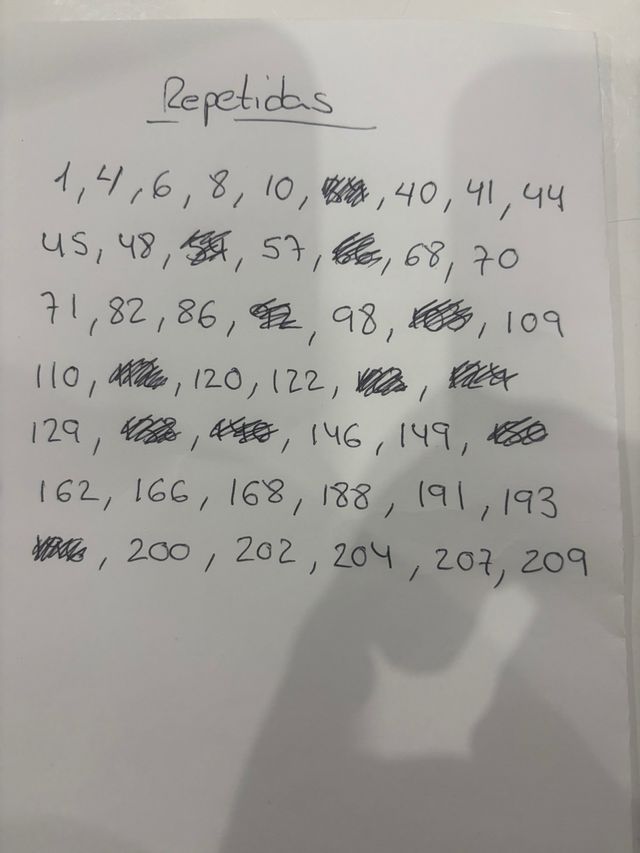 Repetidas
1, 4, 6, 8, 10, , 40, 41, 44
45, 48, , 57, , 68, 70
71, 82, 86, , 98, , 109
110, , 120, 122, ,
129, , , 146, 149,
162, 166, 168, 188, 191, 193
, 200, 202, 204, 207, 209